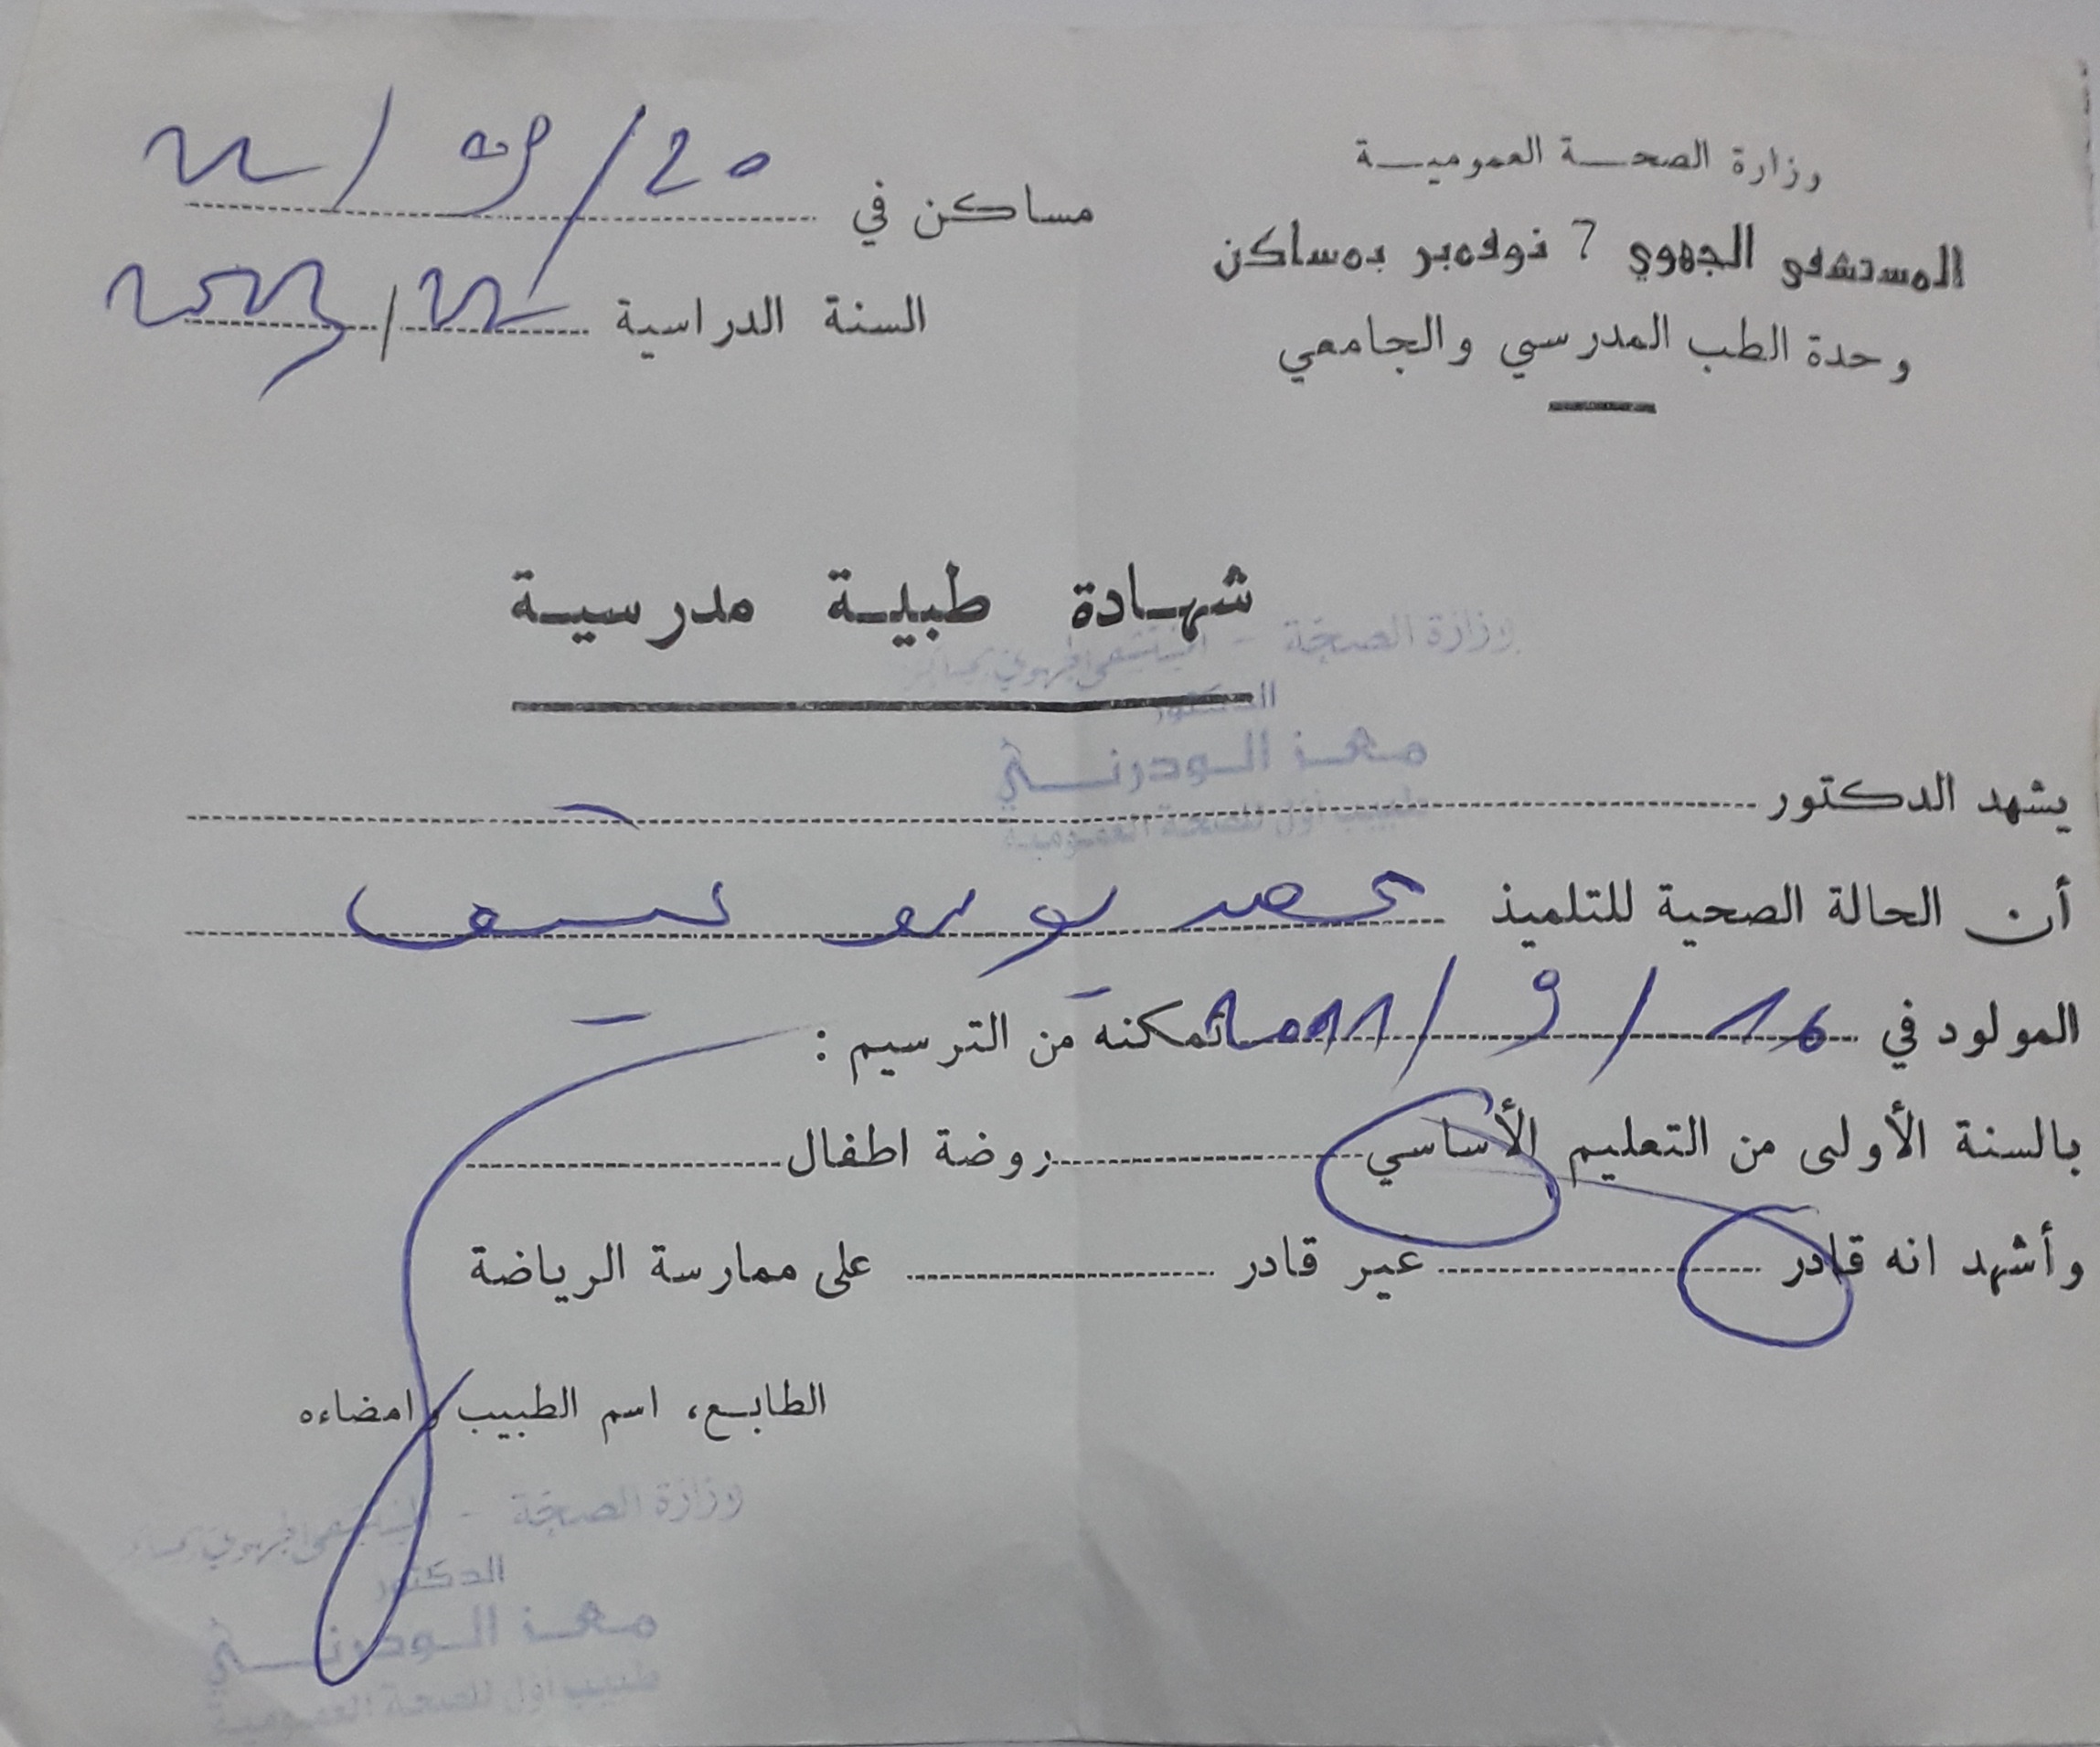 وزارة الصحة العمومية
المستشفى الجهوي 7 نوفمبر بمساكن
وحدة الطب المدرسي والجامعي
مساكن في 20/09/22
السنة الدراسية 22/2023
شهادة طبية مدرسية
وزارة الصحة - المستشفى الجهوي بمساكن
الدكتور
معز الودرني
طبيب أول للصحة العمومية
يشهد الدكتور
أن الحالة الصحية للتلميذ
المولود في 16/9/2011 تمكنه من الترسيم :
بالسنة الأولى من التعليم الأساسي روضة اطفال
وأشهد انه قادر غير قادر على ممارسة الرياضة
الطابع، اسم الطبيب وامضاءه
وزارة الصحة - المستشفى الجهوي بمساكن
الدكتور
معز الودرني
طبيب أول للصحة العمومية